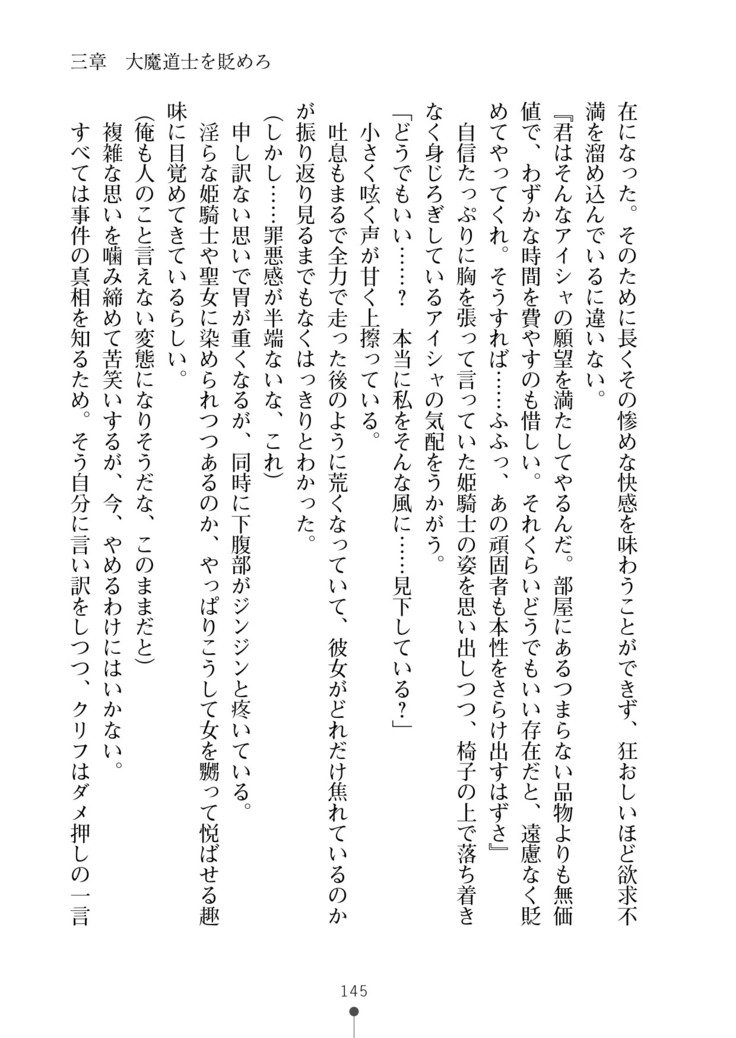 三章　大魔道士を貶めろ
在になった。そのために長くその惨めな快感を味わうことができず、狂おしいほど欲求不
満を溜め込んでいるに違いない。
『君はそんなアイシャの願望を満たしてやるんだ。部屋にあるつまらない品物よりも無価
値で、わずかな時間を費やすのも惜しい。それくらいどうでもいい存在だと、遠慮なく貶
めてやってくれ。そうすれば……ふふっ、あの頑固者も本性をさらけ出すはずさ』
　自信たっぷりに胸を張って言っていた姫騎士の姿を思い出しつつ、椅子の上で落ち着き
なく身じろぎしているアイシャの気配をうかがう。
「どうでもいい……？　本当に私をそんな風に……見下している？」
　小さく呟く声が甘く上擦っている。
　吐息もまるで全力で走った後のように荒くなっていて、彼女がどれだけ焦れているのか
が振り返り見るまでもなくはっきりとわかった。
（しかし……罪悪感が半端ないな、これ）
　申し訳ない思いで胃が重くなるが、同時に下腹部がジンジンと疼いている。
　淫らな姫騎士や聖女に染められつつあるのか、やっぱりこうして女を嬲って悦ばせる趣
味に目覚めてきているらしい。
（俺も人のこと言えない変態になりそうだな、このままだと）
　複雑な思いを噛み締めて苦笑いするが、今、やめるわけにはいかない。
　すべては事件の真相を知るため。そう自分に言い訳をしつつ、クリフはダメ押しの一言
145